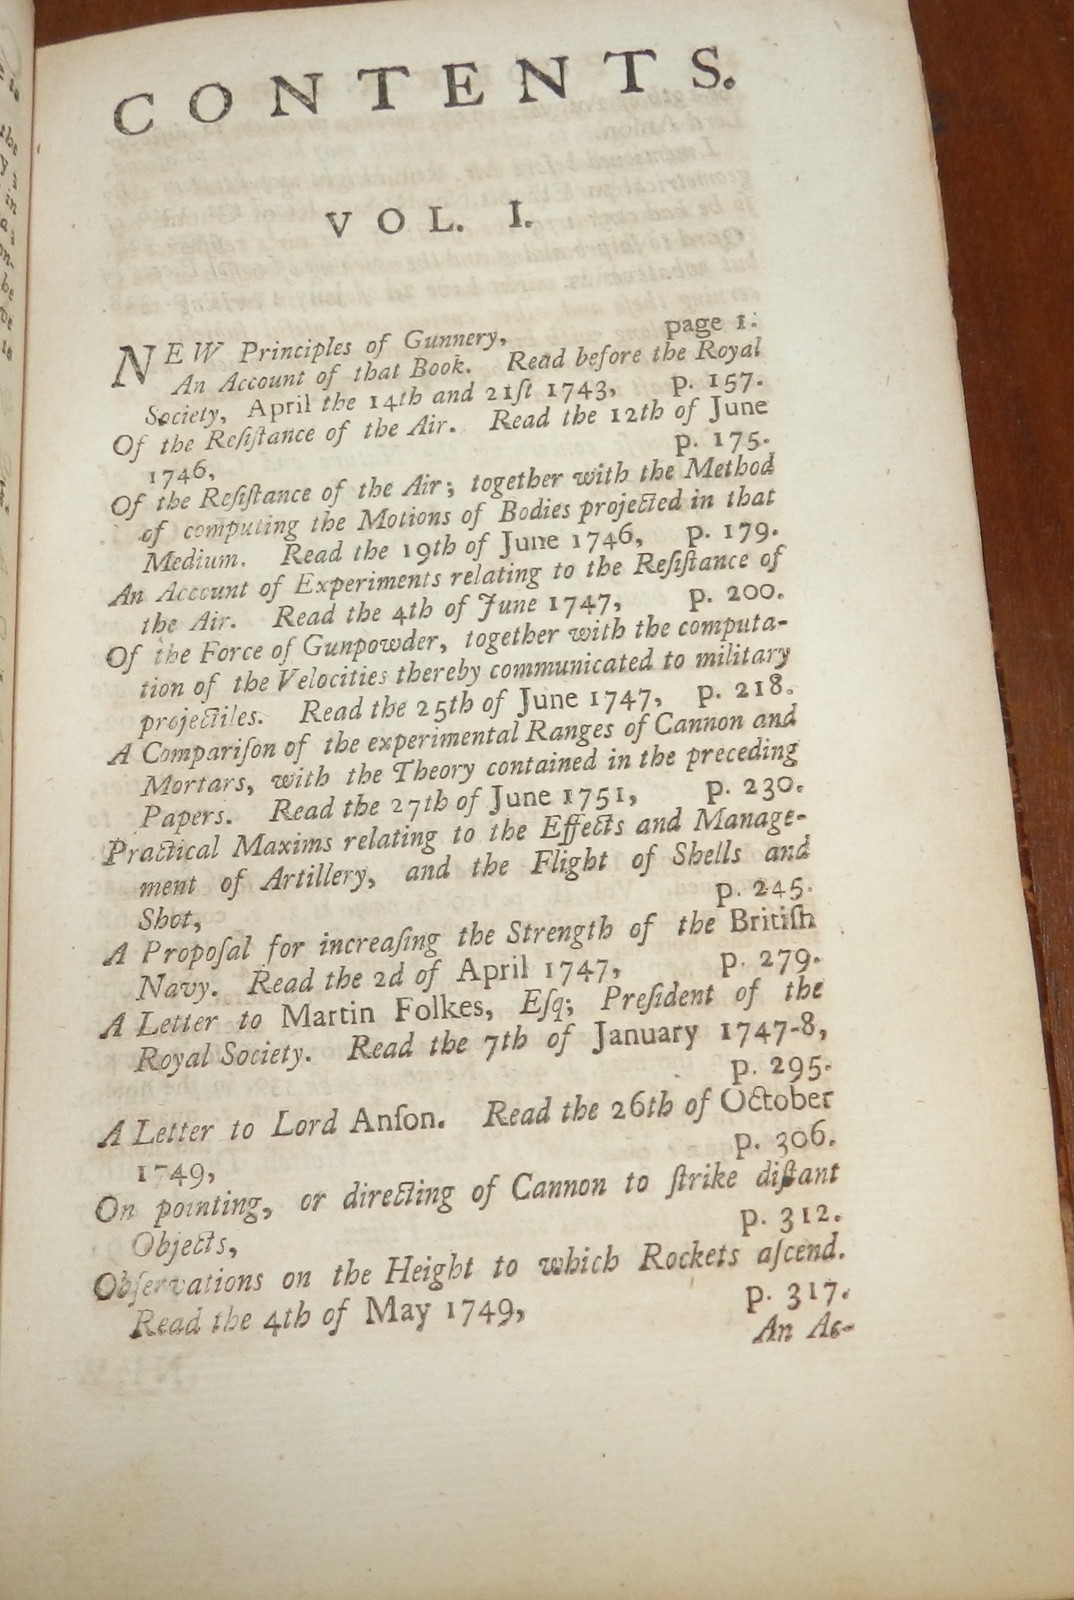 CONTENTS.
VOL. I.
NEW Principles of Gunnery, page 1.
An Account of that Book. Read before the Royal
Society, April the 14th and 21ſt 1743, p. 157.
Of the Reſiſtance of the Air. Read the 12th of June
1746, p. 175.
Of the Reſiſtance of the Air; together with the Method
of computing the Motions of Bodies projected in that
Medium. Read the 19th of June 1746, p. 179.
An Account of Experiments relating to the Reſiſtance of
the Air. Read the 4th of June 1747, p. 200.
Of the Force of Gunpowder, together with the computa-
tion of the Velocities thereby communicated to military
projectiles. Read the 25th of June 1747, p. 218.
A Compariſon of the experimental Ranges of Cannon and
Mortars, with the Theory contained in the preceding
Papers. Read the 27th of June 1751, p. 230.
Practical Maxims relating to the Effects and Manage-
ment of Artillery, and the Flight of Shells and
Shot, p. 245.
A Propoſal for increaſing the Strength of the Britiſh
Navy. Read the 2d of April 1747, p. 279.
A Letter to Martin Folkes, Eſq; Preſident of the
Royal Society. Read the 7th of January 1747-8,
p. 295.
A Letter to Lord Anſon. Read the 26th of October
1749, p. 306.
On pointing, or directing of Cannon to ſtrike diſtant
Objects, p. 312.
Obſervations on the Height to which Rockets aſcend.
Read the 4th of May 1749, p. 317.
An Ac-